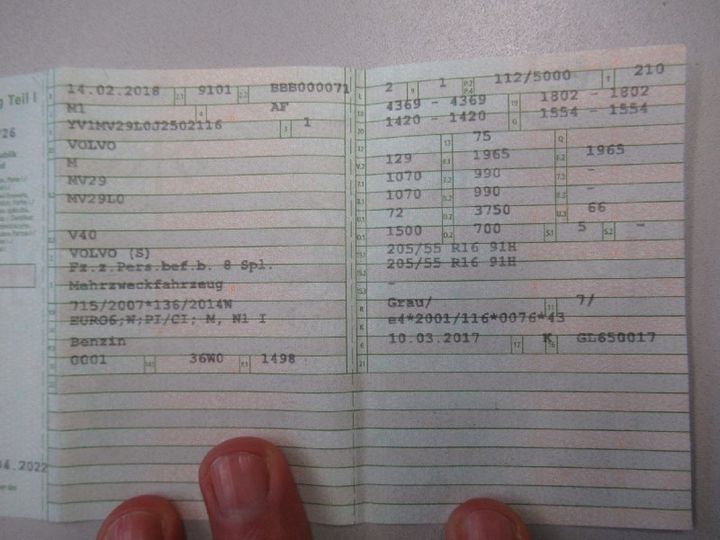 g Teil I
/26
04.2022
14.02.2018 2.1 9101 2.2 BBB000071
M1 4 AF
YV1MV29L0J2502116 3 1
VOLVO
M
MV29
MV29L0
V40
VOLVO (S)
Fz.z.Pers.bef.b. 8 Spl.
Mehrzweckfahrzeug
715/2007*136/2014W
EURO6;W;PI/CI; M, N1 I
Benzin
0001 36W0 1498
2 9 1 P.2 P.4 112/5000 T 210
4369 - 4369 19 1802 - 1802
1420 - 1420 G 1554 - 1554
75
129 1965 1965
1070 7.2 990 -
1070 990 -
72 3750 U.3 66
1500 700 S.1 5 S.2 -
205/55 R16 91H
205/55 R16 91H
-
Grau/ 11 7/
e4*2001/116*0076*43
10.03.2017 17 K 16 GL650017
21